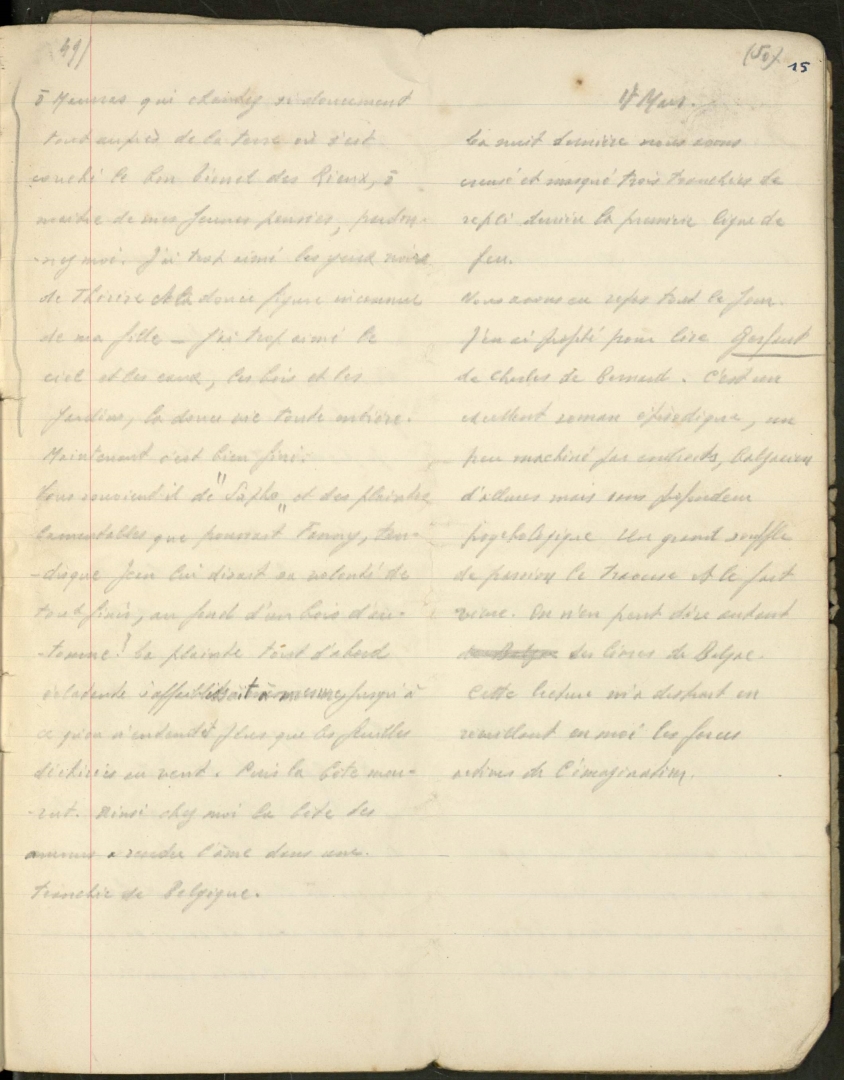 49)
ô Heures qui chantez si doucement
tout auprès de la terre où s'est
couché le bon Lionel des Rieux, ô
maître de mes jeunes pensées, pardon-
-nez moi. J'ai trop aimé les yeux noirs
de Thérèse et la douce figure inconnue
de ma fille — j'ai trop aimé le
ciel et les eaux, les bois et les
jardins, la douce vie toute entière.
Maintenant c'est bien fini.
Vous souvient-il de "Sapho" et des plaintes
lamentables que poussait Fanny, tan-
-disque Jean lui disait sa volonté de
tout finir, au fond d'un bois d'au-
-tomne? La plainte tout d'abord
éclatante s'affaiblissait à mesure jusqu'à
ce qu'on n'entendit plus que les feuilles
déchirées au vent. Puis la bête mou-
-rut. Ainsi chez moi la bête des
amours a rendu l'âme dans une
tranchée de Belgique.
(50) 15
4 Mars.
La nuit dernière nous avons
creusé et masqué trois tranchées de
repli derrière la première ligne de
feu.
Nous avons eu repos tout le jour.
J'en ai profité pour lire Gerfaut
de Charles de Bernard. C'est un
excellent roman épisodique, un
peu machiné par endroits, balzacien
d'allures mais sans profondeur
psychologique. Un grand souffle
de passion le traverse et le fait
vivre. On n'en peut dire autant
de Balzac des livres de Balzac.
Cette lecture m'a distrait en
réveillant en moi les forces
actives de l'imagination.